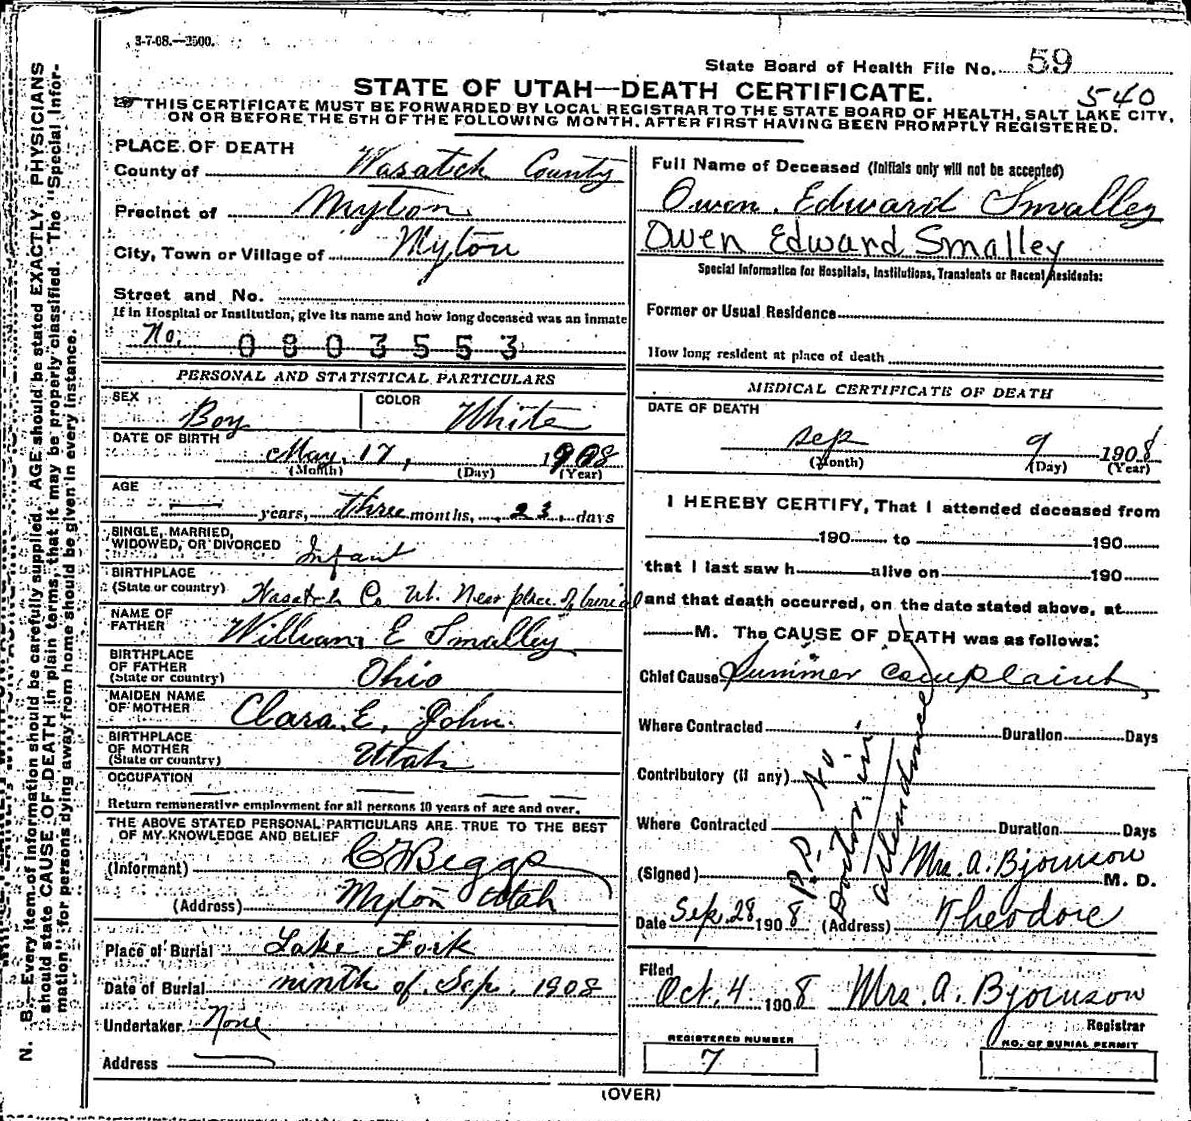 3-7-08.—2500.
State Board of Health File No. 59
STATE OF UTAH—DEATH CERTIFICATE.
540
THIS CERTIFICATE MUST BE FORWARDED BY LOCAL REGISTRAR TO THE STATE BOARD OF HEALTH, SALT LAKE CITY,
ON OR BEFORE THE 5TH OF THE FOLLOWING MONTH, AFTER FIRST HAVING BEEN PROMPTLY REGISTERED.
PLACE OF DEATH
County of Wasatch County
Precinct of Myton
City, Town or Village of Myton
Street and No.
If in Hospital or Institution, give its name and how long deceased was an inmate
No. 0803553
PERSONAL AND STATISTICAL PARTICULARS
SEX Boy COLOR White
DATE OF BIRTH
May 17, 1908
(Month) (Day) (Year)
AGE
— years, three months, 23 days
SINGLE, MARRIED,
WIDOWED, OR DIVORCED Infant
BIRTHPLACE
(State or country) Wasatch Co Ut. Near place of burial
NAME OF
FATHER William E Smalley
BIRTHPLACE
OF FATHER
(State or country) Ohio
MAIDEN NAME
OF MOTHER Clara E. John.
BIRTHPLACE
OF MOTHER
(State or country) Utah
OCCUPATION — — —
Return remunerative employment for all persons 10 years of age and over.
THE ABOVE STATED PERSONAL PARTICULARS ARE TRUE TO THE BEST
OF MY KNOWLEDGE AND BELIEF
(Informant) Beggs
(Address) Myton Utah
Place of Burial Lake Fork
Date of Burial ninth of Sep. 1908
Undertaker None
Address —
Full Name of Deceased (Initials only will not be accepted)
Owen Edward Smalley
Owen Edward Smalley
Special Information for Hospitals, Institutions, Transients or Recent Residents:
Former or Usual Residence
How long resident at place of death
MEDICAL CERTIFICATE OF DEATH
DATE OF DEATH
Sep 9 1908
(Month) (Day) (Year)
I HEREBY CERTIFY, That I attended deceased from
190 to 190
that I last saw h alive on 190
and that death occurred, on the date stated above, at
M. The CAUSE OF DEATH was as follows:
Chief Cause Summer complaint
Where Contracted Duration Days
Contributory (if any)
Where Contracted Duration Days
No
Doctor in
attendance
(Signed) Mrs. A. Bjornson M. D.
Date Sep. 28 1908 (Address) Theodore
Filed
Oct. 4 1908 Mrs A. Bjornson
Registrar
REGISTERED NUMBER
7
NO. OF BURIAL PERMIT
(OVER)
N. B.—Every item of information should be carefully supplied. AGE should be stated EXACTLY. PHYSICIANS
should state CAUSE OF DEATH in plain terms, that it may be properly classified. The "Special Infor-
mation" for persons dying away from home should be given in every instance.